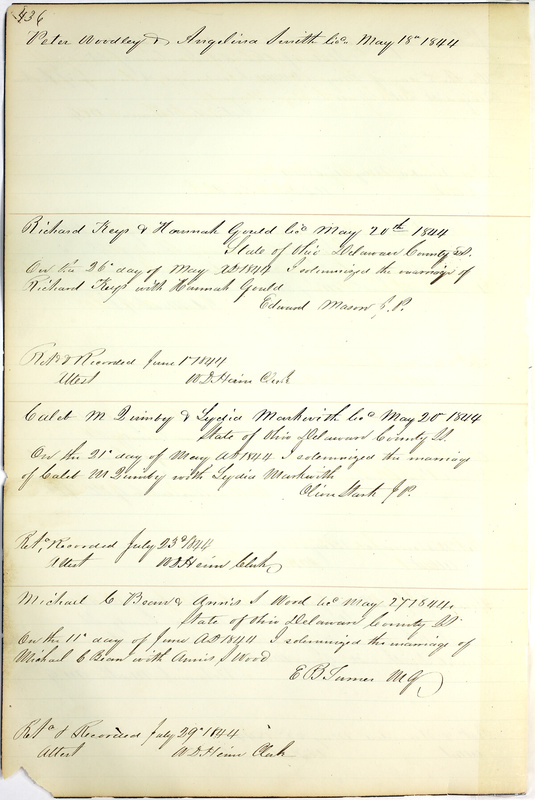 436
Peter Woodley & Angelina Smith Lic May 18 1844
Richard Keys & Hannah Gould Lic May 20th 1844
State of Ohio Delaware County SS.
On the 26 day of May AD 1844 I solemnized the marriage of
Richard Keys with Hannah Gould
Edward Mason J.P.
Ret & Recorded June 1 1844
Attest W D Heim Clerk
Caleb M Quimby & Lydia Markwith Lic May 20 1844
State of Ohio Delaware County SS.
On the 21 day of May AD 1844 I solemnized the marriage
of Caleb M Quimby with Lydia Markwith
Oliver Stark J P.
Ret Recorded July 23d 1844
Attest W D Heim Clerk
Michael C Bean & Annis S Wood Lic May 27 1844.
State of Ohio Delaware County SS
On the 11 day of June AD 1844 I solemnized the marriage of
Michael C Bean with Annis S Wood
E B Turner M G
Ret & Recorded July 29 1844
Attest W D Heim Clerk